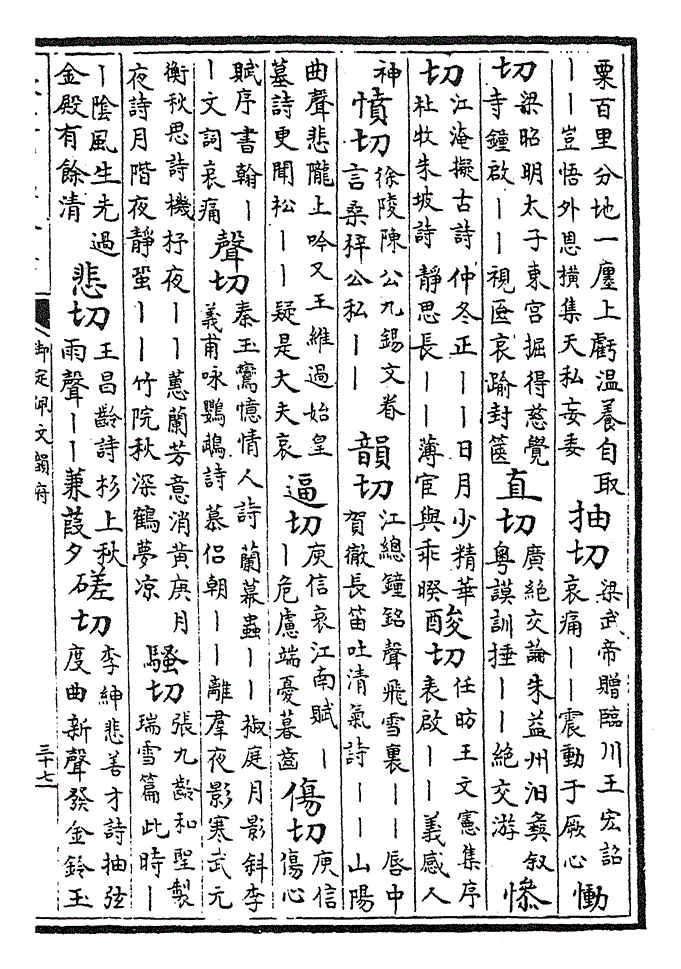 粟百里分地一廛上虧温養自取——豈悟外恩横集天私妄委抽切梁武帝贈臨川王宏詔哀痛——震動于厥心慟
切梁昭明太子東宫掘得慈覺寺鐘啟——視匳哀踰封篋直切廣絶交論朱益州汨彝叙粤謨訓捶——絶交游慘
切江淹擬古詩仲冬正——日月少精華杜牧朱坡詩静思長——薄宦與乖暌酸切任昉王文憲集序表啟——義感人
神憤切徐陵陳公九錫文眷言桑梓公私——韻切江總鐘銘聲飛雪裏——唇中賀徹長笛吐清氣詩——山陽
曲聲悲隴上吟又王維過始皇墓詩更聞松——疑是大夫哀逼切庾信哀江南賦——危慮端憂暮齒傷切庾信傷心
賦序書翰——文詞哀痛聲切秦玉鸞憶情人詩蘭幕蟲——椒庭月影斜李義甫咏鸚鵡詩慕侣朝——離羣夜影寒武元
衡秋思詩機杼夜——蕙蘭芳意消黄庚月夜詩月階夜静蛩——竹院秋深鶴夢凉騷切張九齡和聖製瑞雪篇此時—
—陰風生先過金殿有餘清悲切王昌齡詩杉上秋雨聲——蒹葭夕磋切李紳悲善才詩抽弦度曲新聲發金鈴玉
御定佩文韻府
三十七